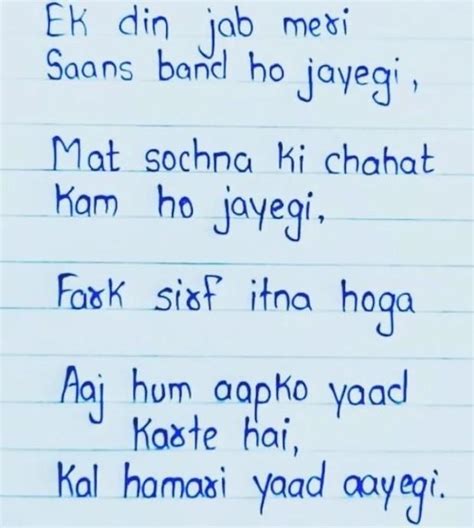 Ek din jab meri
Saans band ho jayegi,
Mat sochna ki chahat
Kam ho jayegi,
Fark sirf itna hoga
Aaj hum aapko yaad
Karte hai,
Kal hamari yaad aayegi.